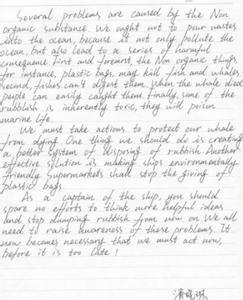 Several problems are caused by the Non
organic substance. We ought not to pour wastes
into the ocean, because it not only pollute the
ocean, but also lead to a series of harmful
consequence. First and foremost, the Non organic things,
for instance, plastic bags, may kill fish and whales.
Second, fishes can't digest them. When the whale died
people can easily caught them. Finally, some of the
rubblish is inherently toxic, they will poison
marine life.
We must take actions to protect our whale
from dying. One thing we should do is creating
a better system of disporing of rubbish. Another
effective solution is making ships environmentally
friendly. Supermarkets shall stop the giving of
plastic bags.
As a captain of the ship, you should
spare no efforts to think more helpful ideas
and stop dumping rubbish from now on. We all
need to raise awareness of these problems. It
now becomes necessary that we must act now,
before it is too late!